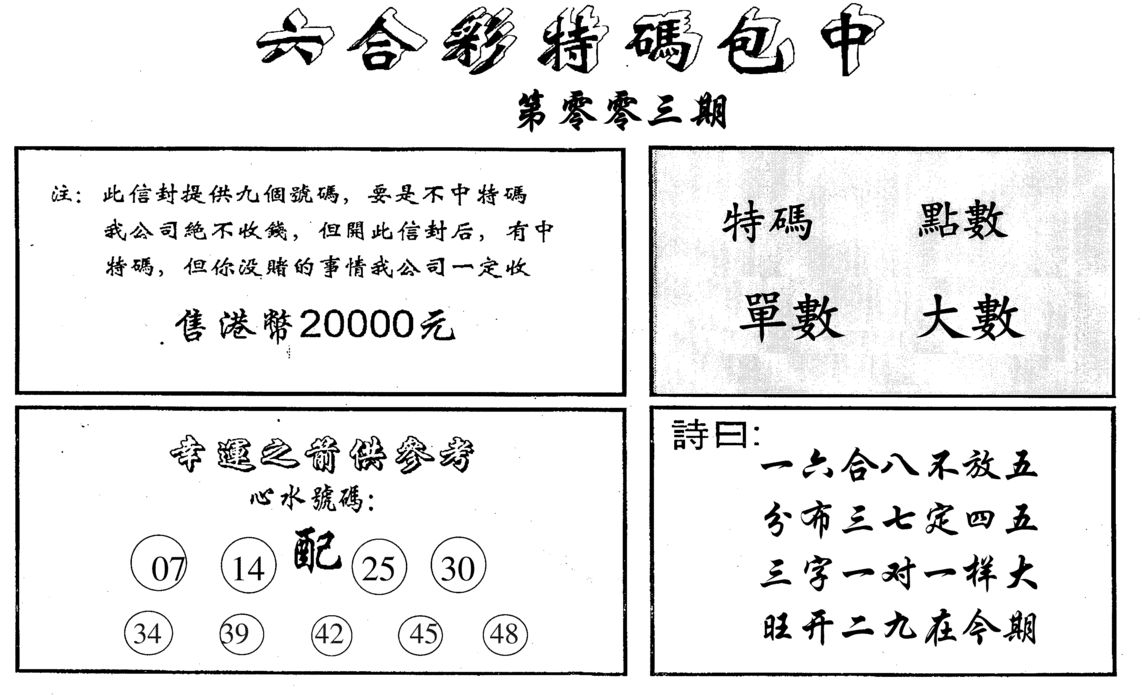 六合彩特碼包中
第零零三期
注：此信封提供九個號碼，要是不中特碼
我公司絕不收錢，但開此信封后，有中
特碼，但你没賭的事情我公司一定收
售港幣20000元
特碼 點數
單數 大數
幸運之箭供參考
心水號碼：
07 14 配 25 30
34 39 42 45 48
詩曰：
一六合八不放五
分布三七定四五
三字一对一样大
旺开二九在今期